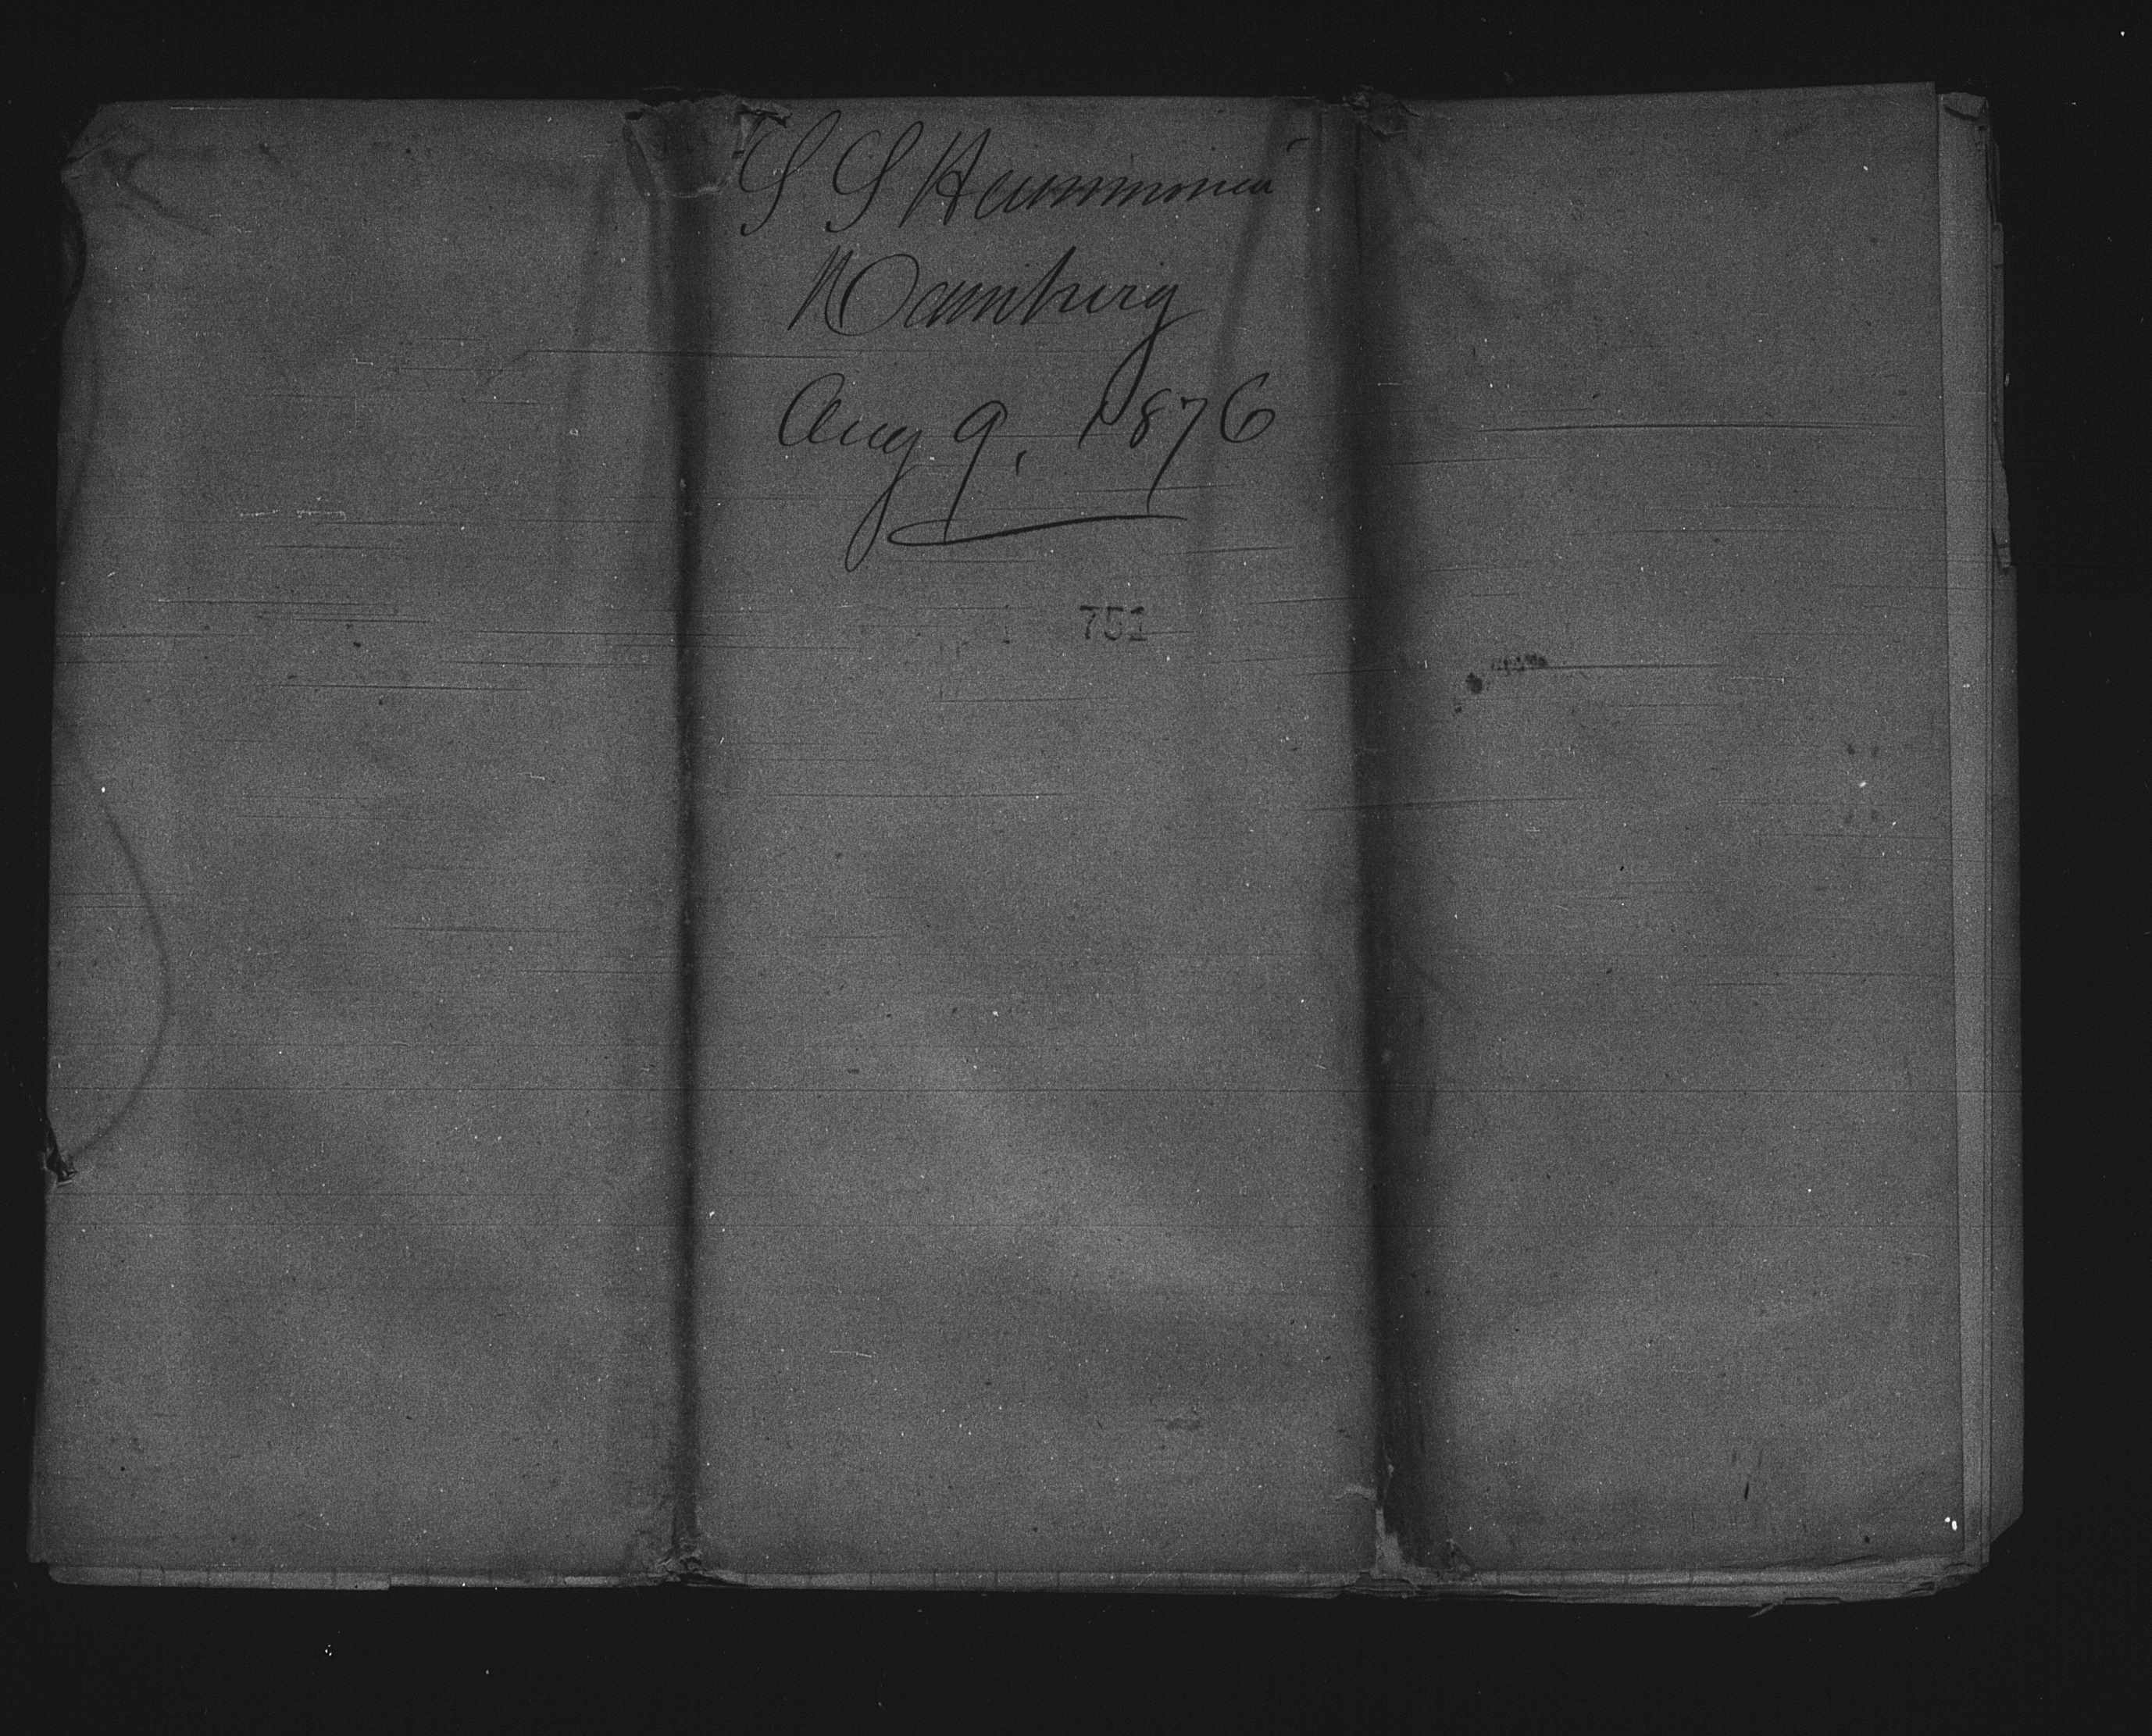 S S Hammonia
Hamburg
Aug 9, 1876
751